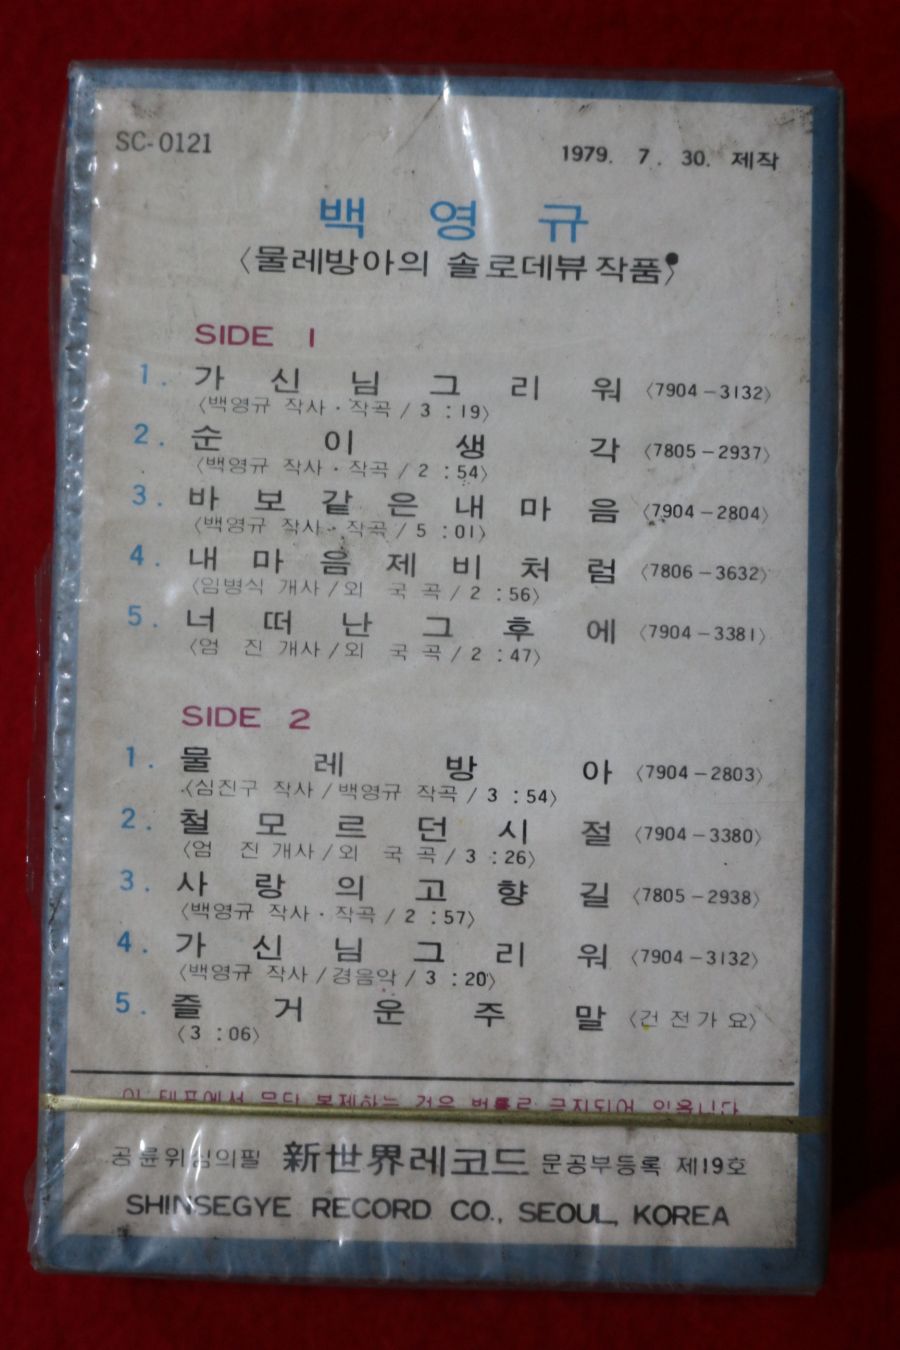 SC-0121
1979. 7. 30. 제작
백 영 규
〈물레방아의 솔로데뷰작품〉
SIDE 1
1. 가 신 님 그 리 워 〈7904-3132〉
〈백영규 작사·작곡/3:19〉
2. 순 이 생 각 〈7805-2937〉
〈백영규 작사·작곡/2:54〉
3. 바 보 같 은 내 마 음 〈7904-2804〉
〈백영규 작사·작곡/5:01〉
4. 내 마 음 제 비 처 럼 〈7806-3632〉
〈임병식 개사/외 국 곡/2:56〉
5. 너 떠 난 그 후 에 〈7904-3381〉
〈엄 진 개사/외 국 곡/2:47〉
SIDE 2
1. 물 레 방 아 〈7904-2803〉
〈심진구 작사/백영규 작곡/3:54〉
2. 철 모 르 던 시 절 〈7904-3380〉
〈엄 진 개사/외 국 곡/3:26〉
3. 사 랑 의 고 향 길 〈7805-2938〉
〈백영규 작사·작곡/2:57〉
4. 가 신 님 그 리 워 〈7904-3132〉
〈백영규 작사/경음악/3:20〉
5. 즐 거 운 주 말 〈건전가요〉
〈3:06〉
이 테프에서 무단 복제하는 것은 법률로 금지되어 있읍니다
공륜위심의필 新世界레코드 문공부등록 제19호
SHINSEGYE RECORD CO., SEOUL, KOREA